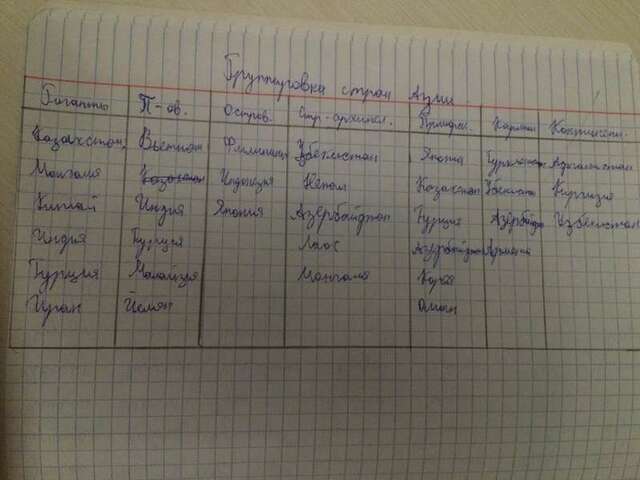 Группировка стран Азии.
Гиганты П-ов. Остров. Стр-архипел. Примор. Континент.
Казахстан, Вьетнам Филиппины Узбекистан Япония Туркменистан Афганистан
Монголия Казахстан Индонезия Непал Казахстан Киргизия
Китай Индия Япония Азербайджан Турция Азербайджан Узбекистан
Индия Турция Лаос Азербайджан Армения
Турция Малайзия Монголия Корея
Иран Йемен Оман